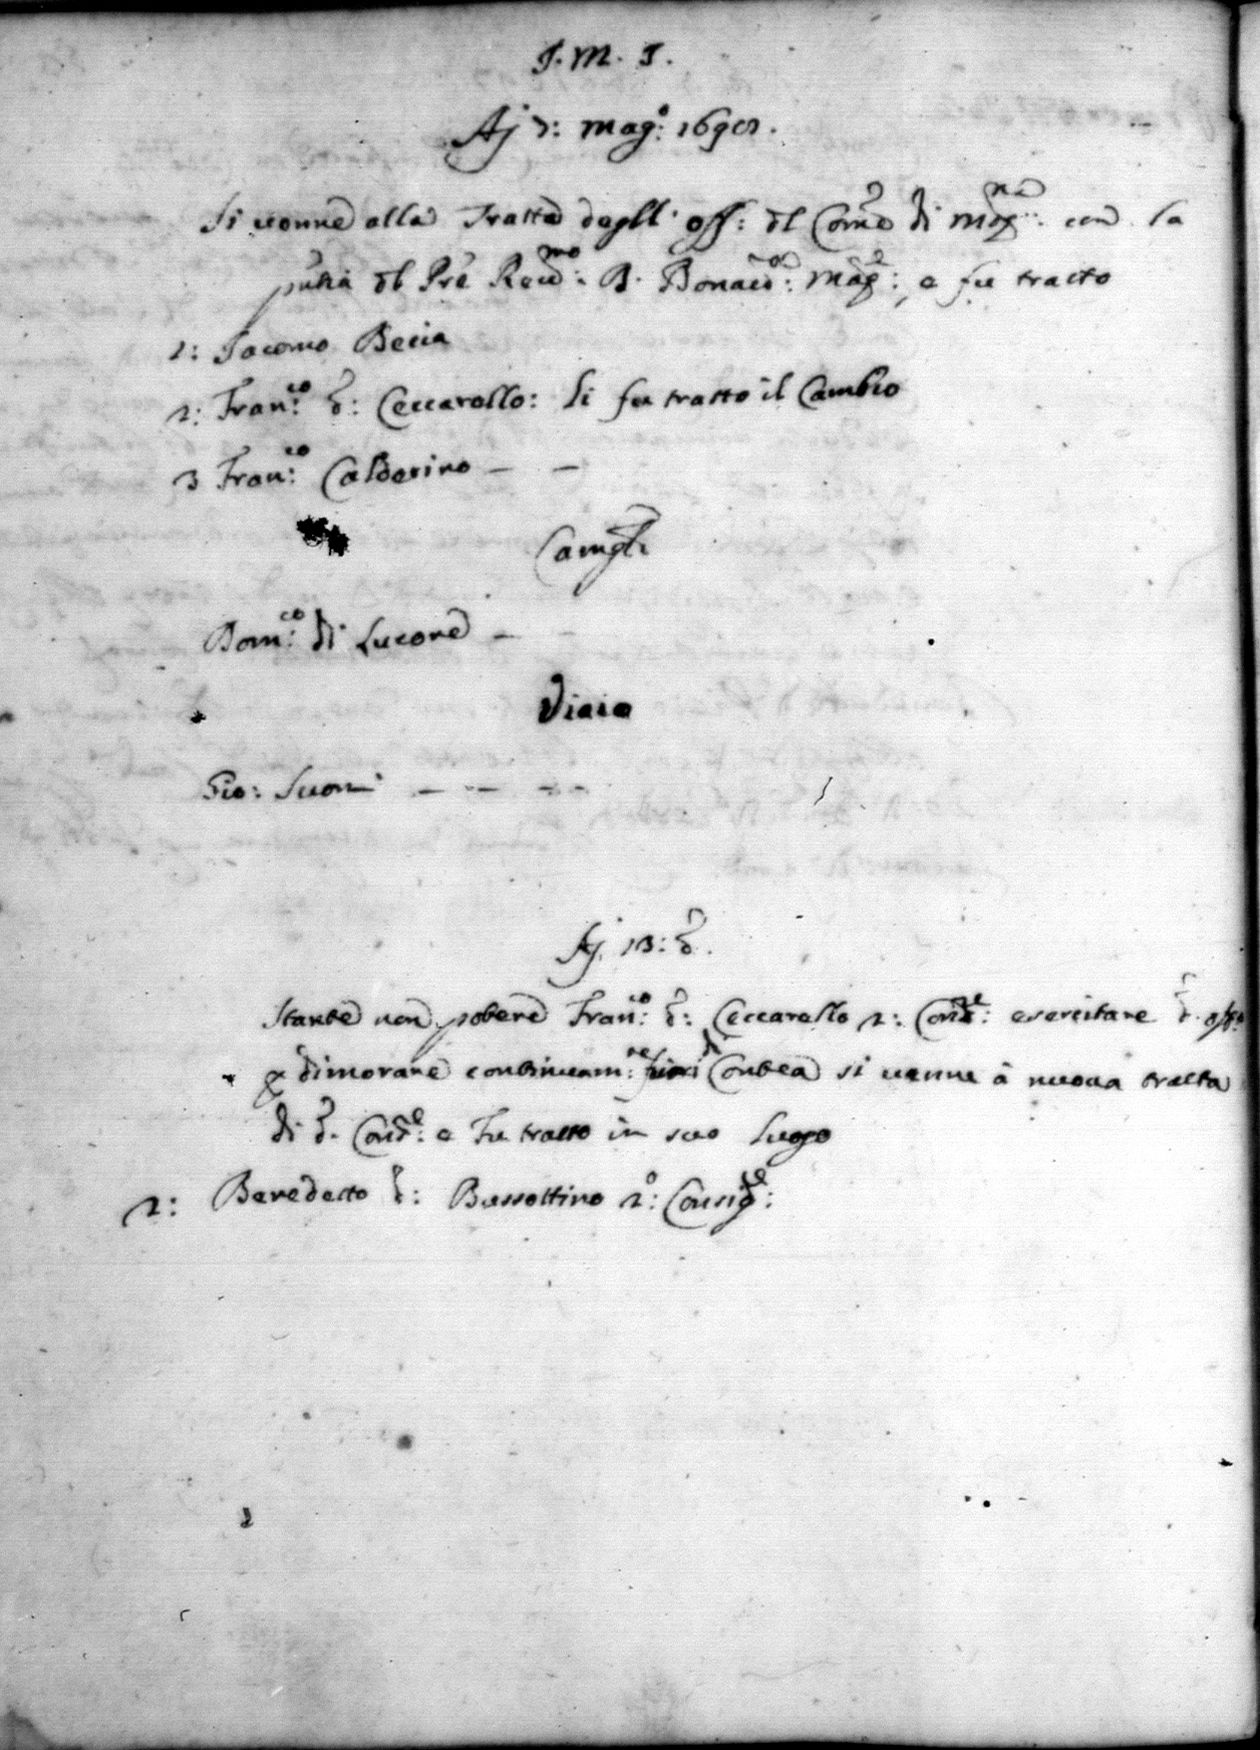 J. M. J.
Aj 7: magº: 1690.
Si venne alla Tratta degll' off: dl Come di con la
dl Pre Reudmo: B. e fu tratto
1: Jacomo Becia
2: Franco: d: Ceccarello: li fu tratto il Cambio
3 Franco: Calderino — —
Camgli
Domco: di Lucone —
Viaio
Gio: — — — —
Aj 13: d.
Stante non potere Franco: d: Ceccarello 2: Conse: esercitare d. offo
p dimorare continuamte: fuori di si venne à nuova tratta
di d. Conse: e Fu tratto in suo luogo
2: Benedetto d: Bussottino 2º: Consige: